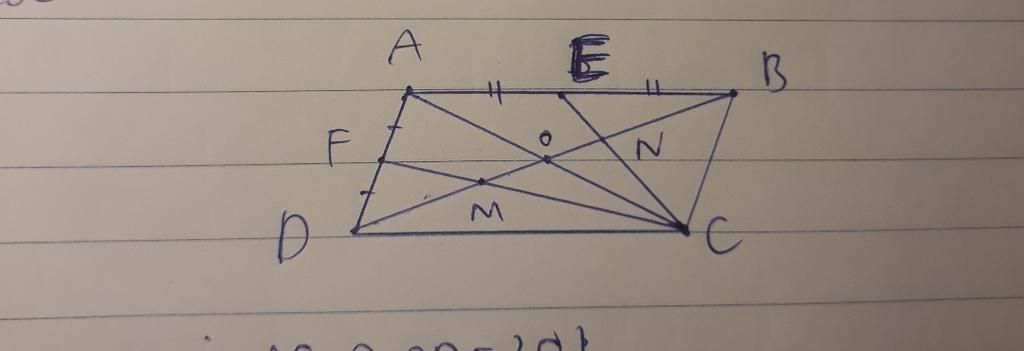 A E B
F O N
M
D C